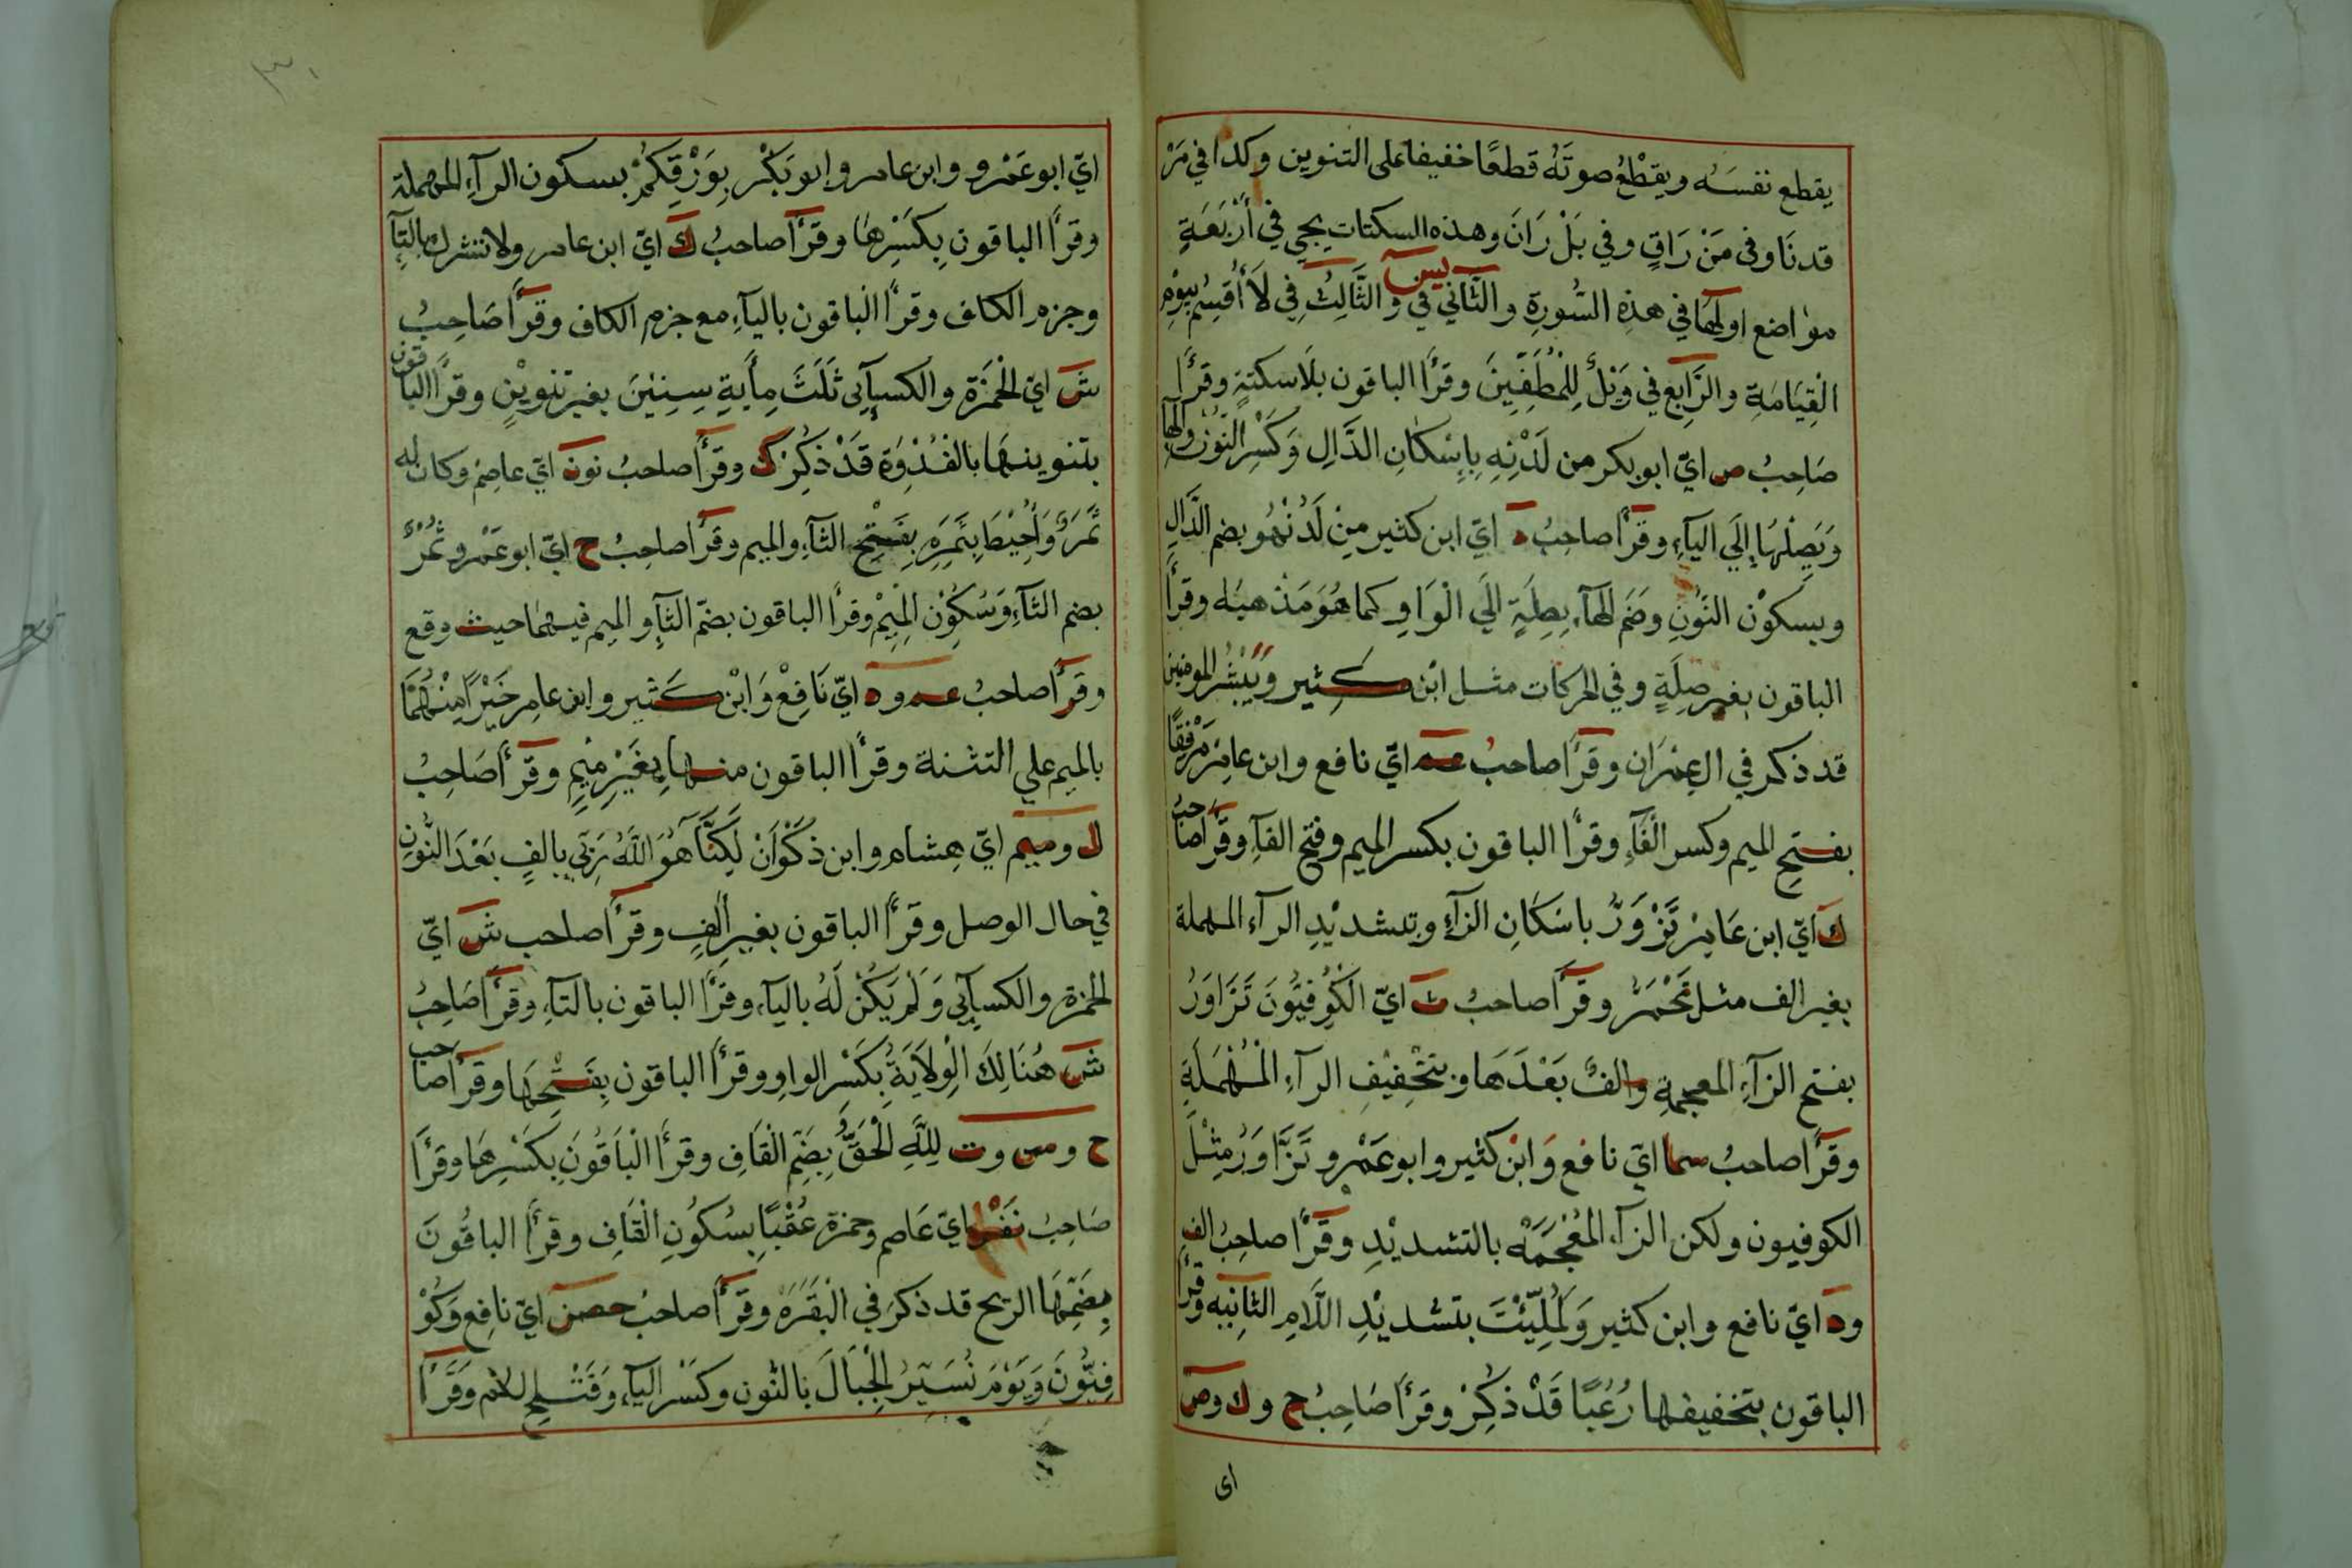 يقطع نفسَه ويقْطَعُ صوتَهُ قطعًا خفيفا على التنوين وكذا في مَرْ
قدنَا وفى مَنْ رَاقٍ وفي بَلْ رَانَ وهذه السكتات يجي في أَرْبَعَةٍ
مواضع اولُهَا في هذِهِ السُّورةِ والثَّاني في يس والثَّالِثُ في لَا أُقْسِمُ بِيَوْمِ
الْقِيَامَةِ والرَّابع في وَيْلٌ لِلْمُطَفِّفِينَ وقرَأَ الباقون بلَا سكتةٍ وقرَأَ
صَاحِبُ ص ايّ ابو بكر من لَدْنِهِ بِاِسْكَانِ الدَّالِ وَكَسْرِ النُّونِ والهَا
وَيَصِلُهَا إِلَي اليَآءِ وقرَأَ صاحبُ د ايّ ابن كثير مِنْ لَدُنْهُو بضم الدَّالِ
وبِسكوْن النُّوْنِ وضَم الهَآءِ بِصِلَةٍ اِلَي الْوَاوِ كما هُوَ مَذْهبُه وقرَأَ
الباقون بغير صِلَةٍ وفي الحركات مثل ابْن كثِير وَيُبَشِّرُ المومنين
قد ذكر في ال عِمْرَان وقرَأَ صاحبُ عم ايّ نافع وابن عامِرْ مَرْفِقًا
بفتحِ الميم وكسر الفَآءِ وقرأَ الباقون بكسر الميم وفتح الفآءِ وقرَأ صاحبُ
ك ايّ ابن عَامِرْ تَزْوَرُّ باسْكَانِ الزآءِ وبتشديْدِ الرآء المهملة
بغير الف مثل تَحْمَرُّ وقرَأَ صاحبُ ث ايّ الكُوفِيُّونَ تَزَاوَرُ
بفتح الزآءِ المعجمةِ والفٌ بَعْدَهَا وبتخْفِيْفِ الرآءِ الْمُهْمَلَةِ
وقرَأَ صاحبُ سما ايّ نافع وَابْن كثير وابو عَمْرو تَزَّاوَرُ مِثْلَ
الكوفيون ولكن الزآءِ المُعْجَمَةِ بالتشديْدِ وقرَأَ صاحِبُ الف
ود ايّ نافع وابن كثير وَلَمُلِّئْتَ بتشديْدِ اللَّامِ الثانِيه وقرأ
الباقون بتخفيفها رُعُبًا قَدْ ذكِرْ وقرَأَ صَاحِبُ ح وك وص
اى
٣٠
ايّ ابو عَمْرو وابن عامر وابو بَكْر بِوَرْقِكُمْ بسكون الرآءِ المهملة
وقرَأَ الباقون بِكَسْرِهَا وقرَأَ صاحبُ ك ايّ ابن عامر ولا تشرك بالتآءِ
وجزم الكاف وقرأَ الباقون باليآءِ مع جزم الكاف وقرَأَ صَاحِبُ
ش ايّ الحَمْزَة والكسآئِى ثَلَثَ مِأَيةِ سِنِيْنَ بغير تنويْنٍ وقرأَ الباقون
بتنوينهَا بالغُدْوَة قَدْ ذكِرْ ك وقرَأَ صاحبُ نون ايّ عاصِمْ وكان له
ثَمَرٌ وَاُحِيْطَ بِثَمَرِهِ بِفَتْحِ الثآءِ والميم وقرَأَ صاحِبُ ح ايّ ابو عَمْرو ثُمْرٌ
بضم الثآءِ وَسُكُوْن المِيْم وقرأَ الباقون بضمّ الثآءِ والميم فيهمَا حيث وقع
وقرَأَ صاحبُ عم ود ايّ نَافِعْ وَابْن كثير وابن عامِر خَيْرًا مِنْهُمَا
بالميم علي التثنة وقرأَ الباقون منها بِغَيْرِ مِيْمٍ وقرَأَ صَاحِبُ
ل وميم ايّ هِشام وابن ذكْوَانْ لَكِنَّآ هُوَ اللَّهُ رَبّي بالفٍ بَعْدَ النُّونِ
في حال الوصل وقرَأَ الباقون بغير أَلفٍ وقرَأَ صاحب ش ايّ
الحمزة والكسآئِي وَلَمْ يَكُنْ لَهُ باليآءِ وقرَأَ الباقون بالتآءِ وقرَأَ صَاحِبُ
ش هُنَالِكَ الْوِلَايَةُ بِكَسْر الواوِ وقرَأَ الباقون بِفَتْحِهَا وقرَأَ صاحب
ح وس وت لِلَّهِ الْحَقُّ بِضَمِّ الْقَافِ وقرَأَ الْبَاقُونَ بِكَسْرِهَا وقرَأَ
صَاحِبُ ايّ عَاصم وحمزة عُقْبًا بِسُكُونِ الْقَافِ وقرَأَ الباقُونَ
بِضَمِّهَا الريح قد ذكرَ في الْبَقَرَهْ وقرَأَ صاحبُ حصن ايّ نافِع وَكُوْ
فِيُّوْنَ وَيَوْمَ نُسَيِّرُ الجِبَالَ بالنُّون وكَسْر اليآءِ وَفَتْحِ للام وَقَرَأَ